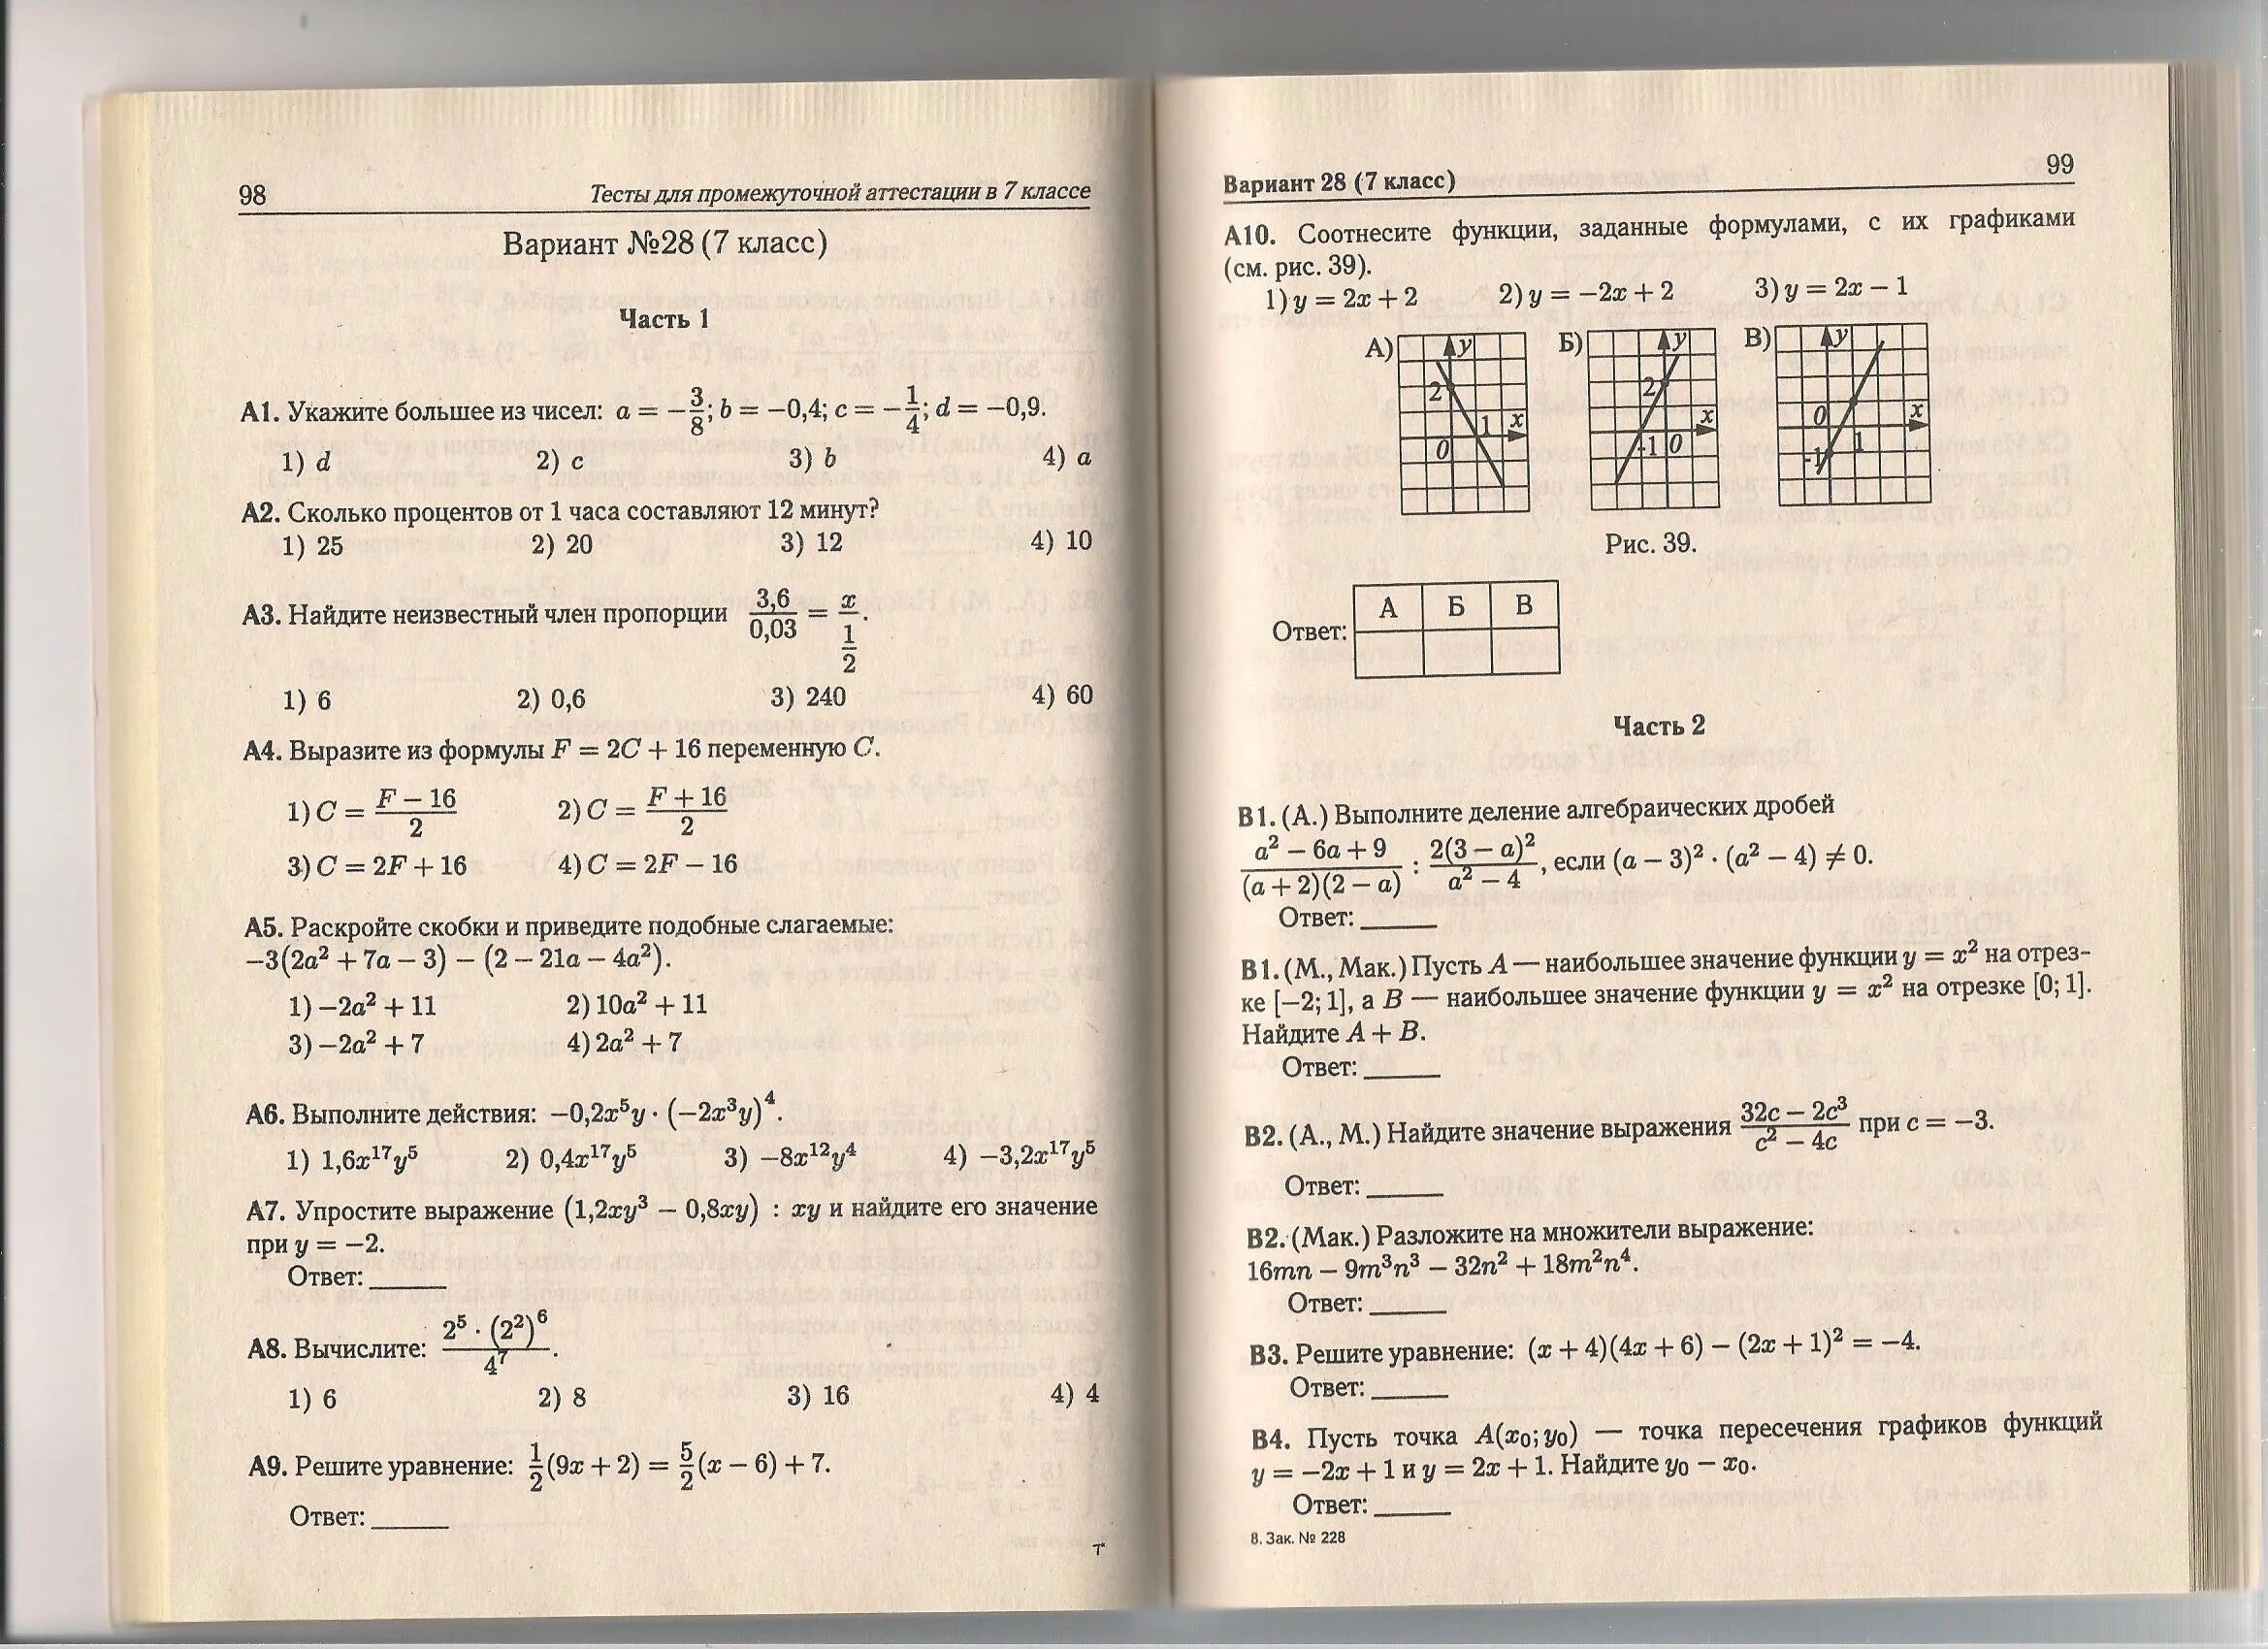 98 Тесты для промежуточной аттестации в 7 классе
Вариант №28 (7 класс)
Часть 1
А1. Укажите большее из чисел: a = −3/8; b = −0,4; c = −1/4; d = −0,9.
1) d 2) c 3) b 4) a
А2. Сколько процентов от 1 часа составляют 12 минут?
1) 25 2) 20 3) 12 4) 10
А3. Найдите неизвестный член пропорции 3,6/0,03 = x/(1/2).
1) 6 2) 0,6 3) 240 4) 60
А4. Выразите из формулы F = 2C + 16 переменную C.
1) C = (F − 16)/2 2) C = (F + 16)/2
3) C = 2F + 16 4) C = 2F − 16
А5. Раскройте скобки и приведите подобные слагаемые:
−3(2a² + 7a − 3) − (2 − 21a − 4a²).
1) −2a² + 11 2) 10a² + 11
3) −2a² + 7 4) 2a² + 7
А6. Выполните действия: −0,2x⁵y · (−2x³y)⁴.
1) 1,6x¹⁷y⁵ 2) 0,4x¹⁷y⁵ 3) −8x¹²y⁴ 4) −3,2x¹⁷y⁵
А7. Упростите выражение (1,2xy³ − 0,8xy) : xy и найдите его значение
при y = −2.
Ответ: ______
А8. Вычислите: 2⁵ · (2²)⁶/4⁷.
1) 6 2) 8 3) 16 4) 4
А9. Решите уравнение: 1/2(9x + 2) = 5/2(x − 6) + 7.
Ответ: ______
7*
Вариант 28 (7 класс) 99
А10. Соотнесите функции, заданные формулами, с их графиками
(см. рис. 39).
1) y = 2x + 2 2) y = −2x + 2 3) y = 2x − 1
А) y 2 1 x 0
Б) y 2 x -1 0
В) y 0 x -1 1
Рис. 39.
А Б В
Ответ:
Часть 2
В1. (А.) Выполните деление алгебраических дробей
(a² − 6a + 9)/((a + 2)(2 − a)) : 2(3 − a)²/(a² − 4), если (a − 3)² · (a² − 4) ≠ 0.
Ответ: ______
В1. (М., Мак.) Пусть A — наибольшее значение функции y = x² на отрез-
ке [−2; 1], а B — наибольшее значение функции y = x² на отрезке [0; 1].
Найдите A + B.
Ответ: ______
В2. (А., М.) Найдите значение выражения (32c − 2c³)/(c² − 4c) при c = −3.
Ответ: ______
В2. (Мак.) Разложите на множители выражение:
16mn − 9m³n³ − 32n² + 18m²n⁴.
Ответ: ______
В3. Решите уравнение: (x + 4)(4x + 6) − (2x + 1)² = −4.
Ответ: ______
В4. Пусть точка A(x₀; y₀) — точка пересечения графиков функций
y = −2x + 1 и y = 2x + 1. Найдите y₀ − x₀.
Ответ: ______
8. Зак. № 228